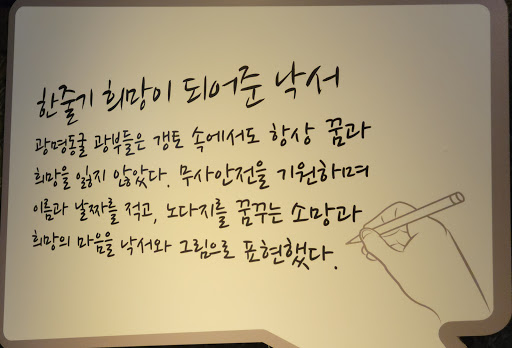 한줄기 희망이 되어준 낙서
광명동굴 광부들은 갱도 속에서도 항상 꿈과
희망을 잃지 않았다. 무사안전을 기원하며
이름과 날짜를 적고, 노다지를 꿈꾸는 소망과
희망의 마음을 낙서와 그림으로 표현했다.